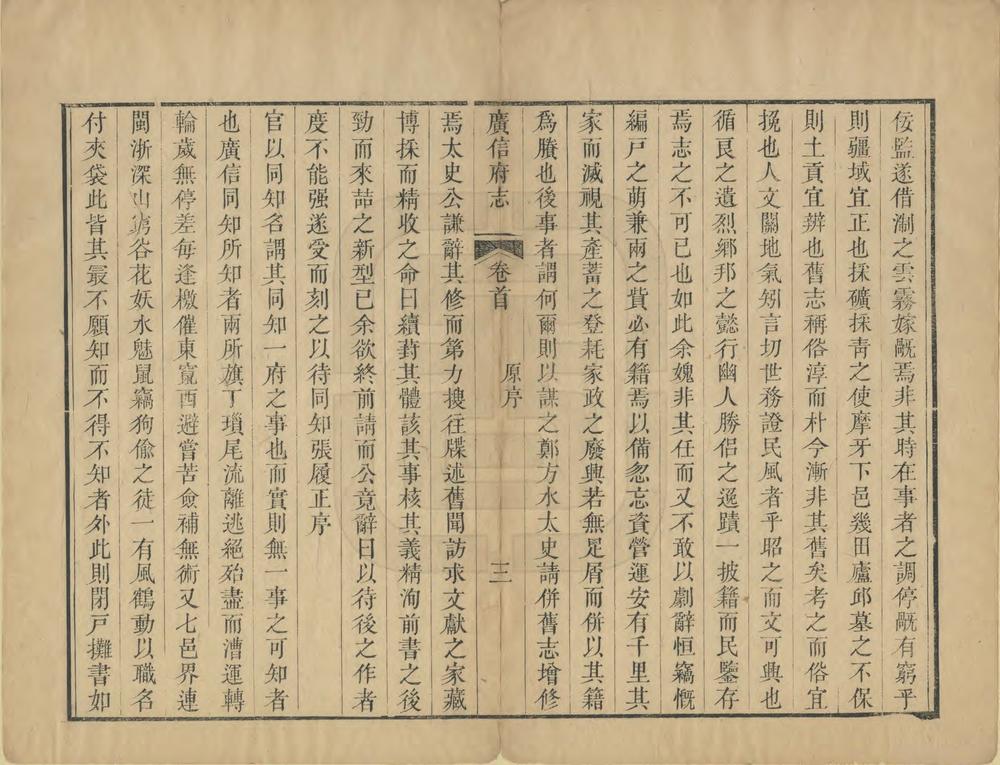 佞監遂借澍之雲霧嫁旤焉非其時在事者之調停旤有窮乎
則疆域宜正也採礦採青之使摩牙下邑幾田廬邱墓之不保
則土貢宜辨也舊志稱俗淳而朴今漸非其舊矣考之而俗宜
挽也人文關地氣矧言切世務證民風者乎昭之而文可興也
循良之遺烈鄉邦之懿行幽人勝侶之逸蹟一披籍而民鑒存
焉志之不可已也如此余媿非其任而又不敢以劇辭恒竊慨
編戸之萌兼兩之貲必有籍焉以備忽忘資營運安有千里其
家而滅視其產蓄之登耗家政之廢興若無足屑而併以其籍
爲賸也後事者謂何爾則以謀之鄭方水太史請併舊志增修
廣信府志 卷首 原序 三
焉太史公謙辭其修而第力搜往牒述舊聞訪求文獻之家藏
博採而精收之命曰續葑其體該其事核其義精洵前書之後
勁而來喆之新型已余欲終前請而公竟辭曰以待後之作者
度不能强遂受而刻之以待同知張履正序
官以同知名謂其同知一府之事也而實則無一事之可知者
也廣信同知所知者兩所旗丁瑣尾流離逃絕殆盡而漕運轉
輪歲無停差每逢檄催東竄西避嘗苦僉補無術又七邑界連
閩浙深山窮谷花妖水魅鼠竊狗偷之徒一有風鶴動以職名
付夾袋此皆其最不願知而不得不知者外此則閉戸攤書如